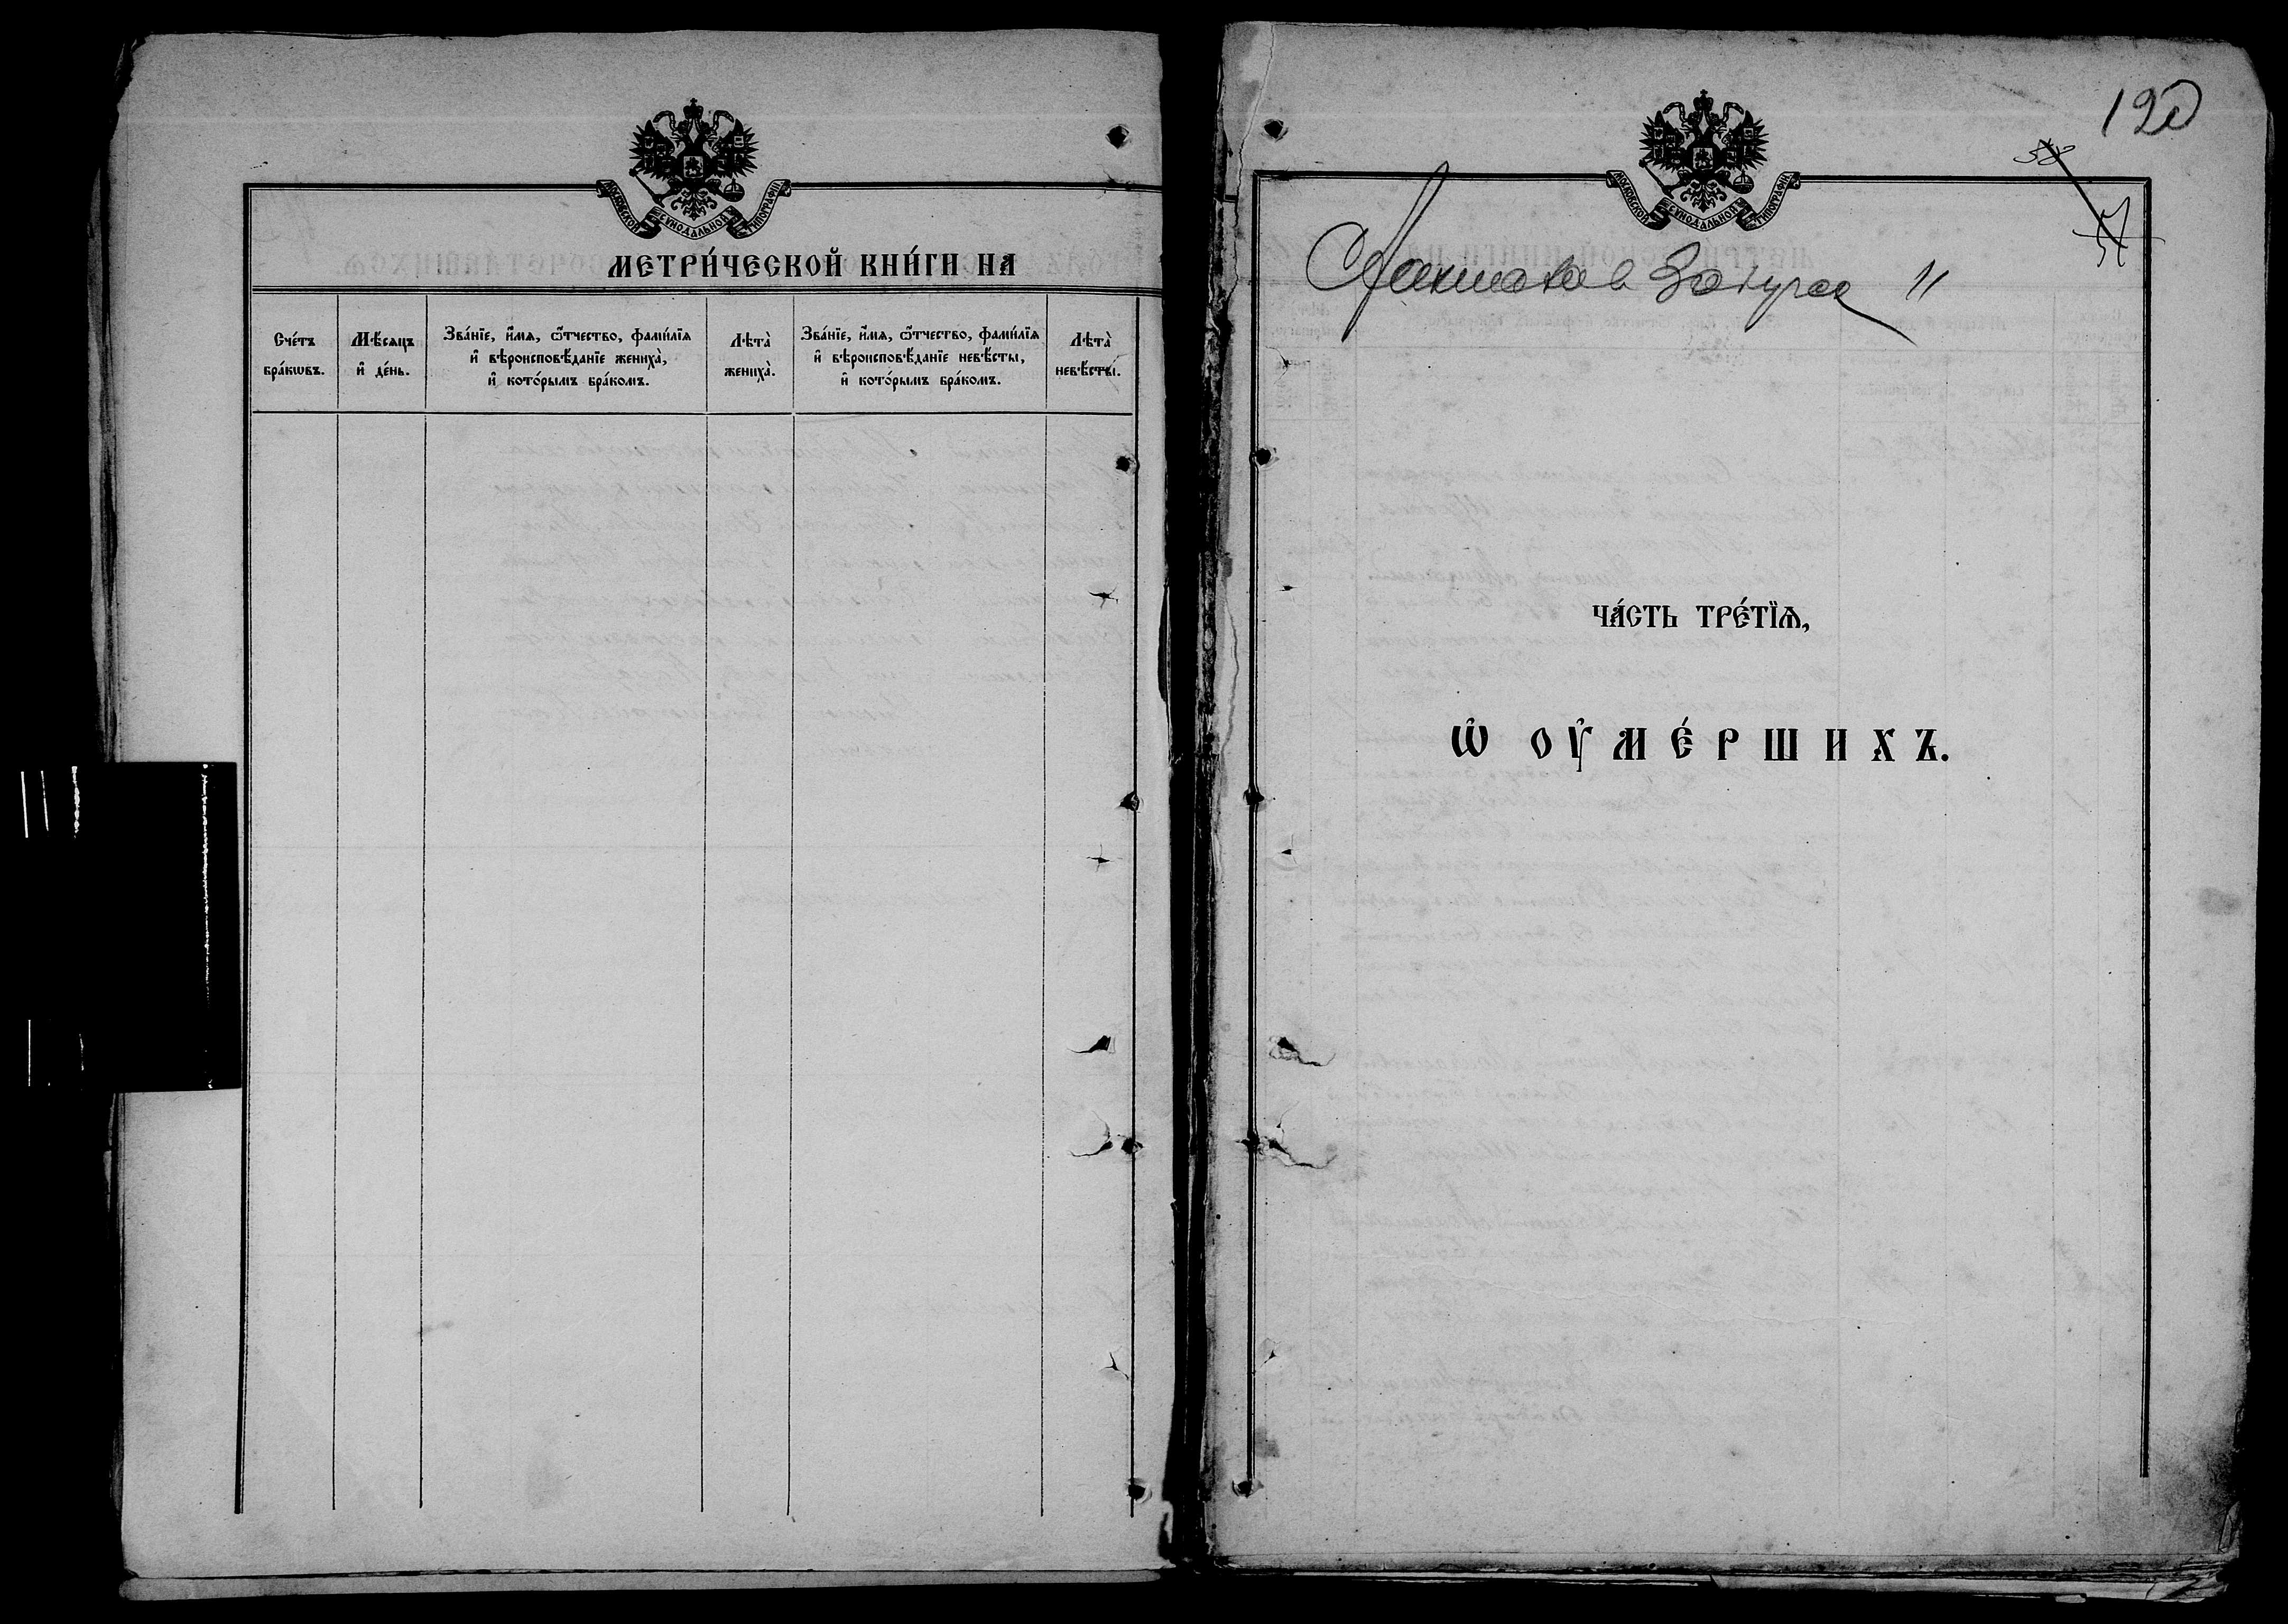 МОСКОВСКОЙ СѴНОДАЛЬНОЙ ТИПОГРАФІИ
МЕТРИ́ЧЕСКОЙ КНИ́ГИ НА
Сче́тъ бра́кѡвъ.
Мѣ́сяцъ и҆ де́нь.
Зва́нїе, и҆́мя, ѻ҆́тчество, фами́лїя
и҆ вѣроисповѣ́данїе жениха̀,
и҆ кото́рымъ бра́комъ.
Лѣта̀ жениха̀.
Зва́нїе, и҆́мя, ѻ҆́тчество, фами́лїя
и҆ вѣроисповѣ́данїе невѣ́сты,
и҆ кото́рымъ бра́комъ.
Лѣта̀ невѣ́сты.
120
58
57
МОСКОВСКОЙ СѴНОДАЛЬНОЙ ТИПОГРАФІИ
ЧА́СТЬ ТРЕ́ТЇѦ,
Ѡ҆ ОУ҆МЕ́РШИХЪ.